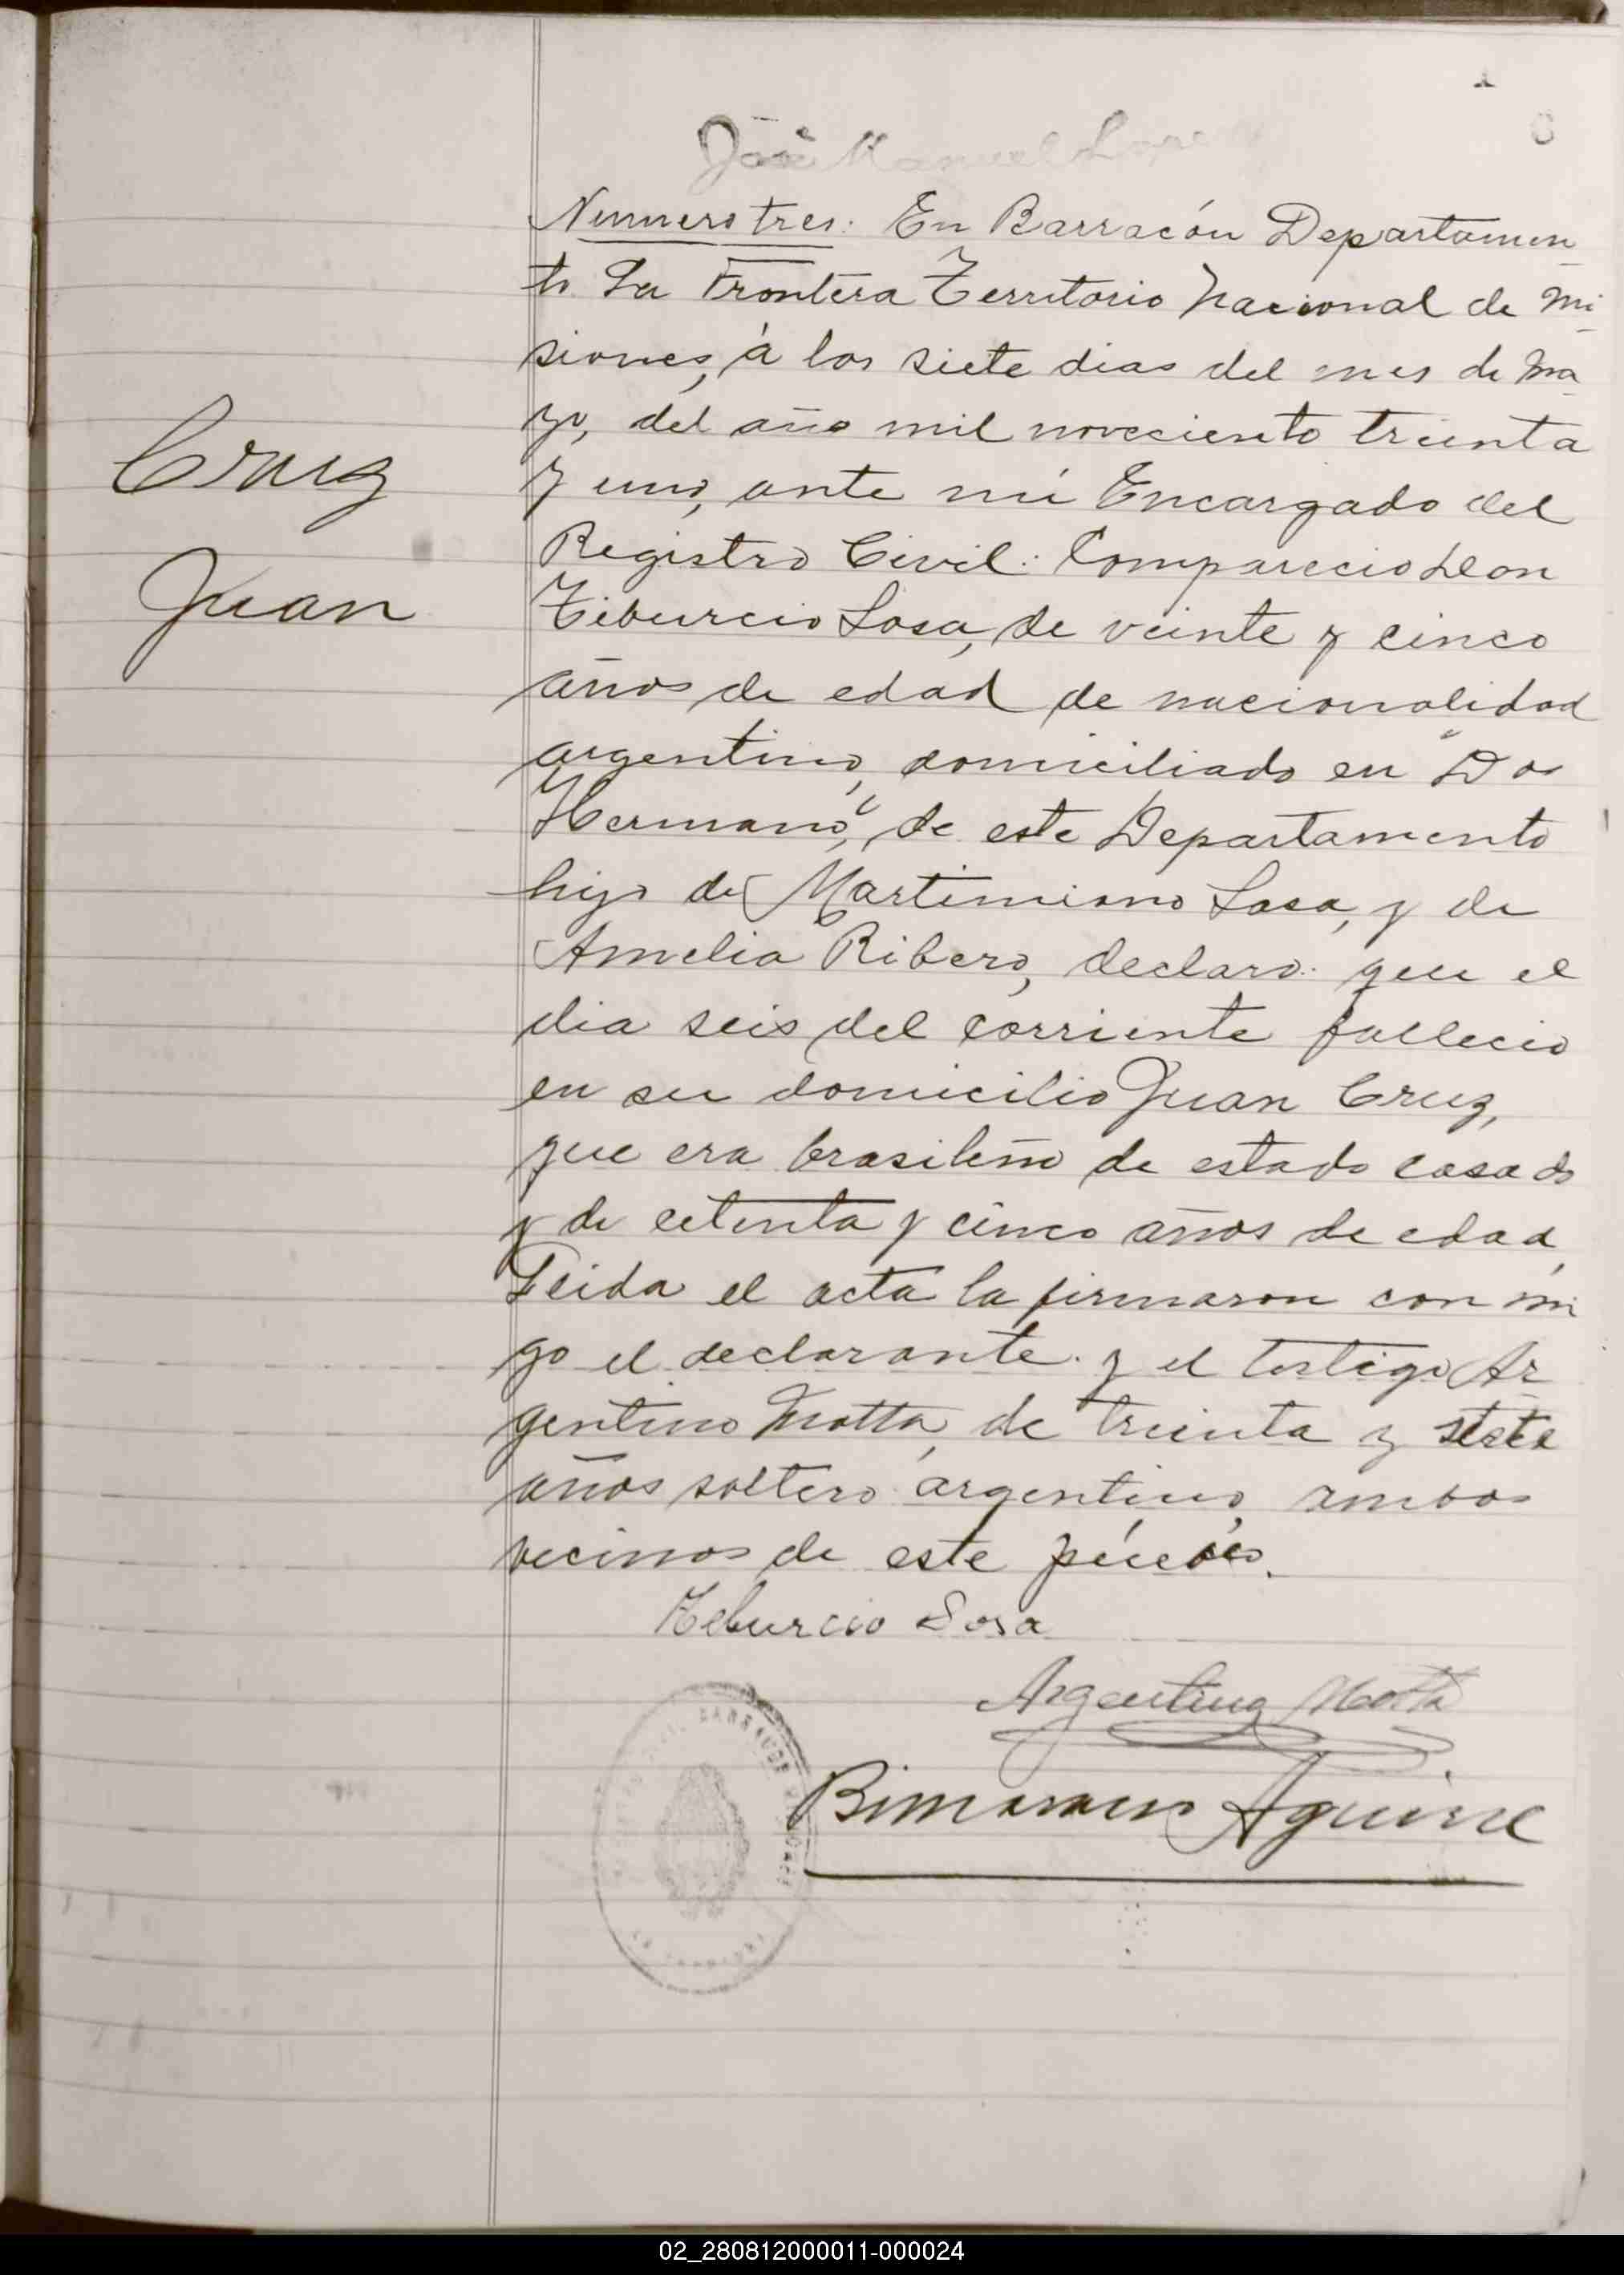 José Manuel
Cruz
Juan
Numero tres: En Barracón Departamen
to La Frontera Territorio Nacional de Mi
siones, á los siete dias del mes de Ma
yo, del año mil noveciento treinta
y uno, ante mi Encargado del
Registro Civil: Comparecio Don
Tiburcio Sosa, de veinte y cinco
años de edad de nacionalidad
argentino, domiciliado en "Dos
Hermano", de este Departamento
hijo de Martimiano Sosa, y de
Amelia Ribero, declaro: que el
dia seis del corriente fallecio
en su domicilio Juan Cruz,
que era brasileño de estado casado
y de cetenta y cinco años de edad,
Leida el acta la firmaron con mi
go el declarante y el testigo Ar
gentino Motta, de treinta y siete
años soltero argentino, ambos
vecinos de este
Teburcio Sosa
Argentino Motta
Aguirre
02_280812000011-000024